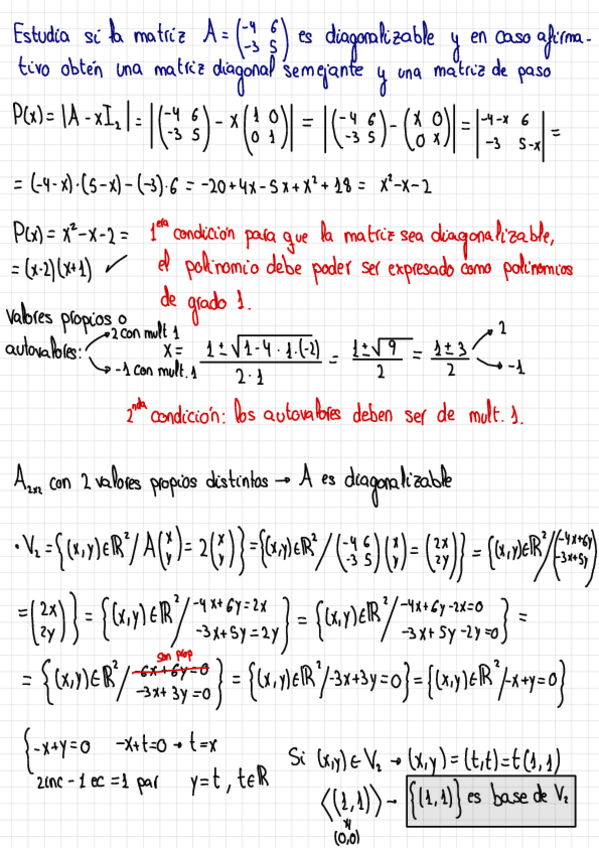 Estudia si la matriz A = (-4 6 / -3 5) es diagonalizable y en caso afirma-
tivo obtén una matriz diagonal semejante y una matriz de paso
P(x) = |A - xI₂| = |(-4 6 / -3 5) - x(1 0 / 0 1)| = |(-4 6 / -3 5) - (x 0 / 0 x)| = |-4-x 6 / -3 5-x| =
= (-4-x)·(5-x) - (-3)·6 = -20+4x-5x+x²+18 = x²-x-2
P(x) = x²-x-2 = 1era condición para que la matriz sea diagonalizable,
= (x-2)(x+1) ✓ el polinomio debe poder ser expresado como polinomios
de grado 1.
Valores propios o
autovalores: 2 con mult 1
-1 con mult. 1
x = (1 ± √(1-4·1·(-2))) / (2·1) = (1 ± √9) / 2 = (1 ± 3) / 2 → 2 → -1
2nda condición: los autovalores deben ser de mult. 1.
A₂ₓ₂ con 2 valores propios distintos → A es diagonalizable
· V₂ = {(x,y)∈ℝ² / A(x / y) = 2(x / y)} = {(x,y)∈ℝ² / (-4 6 / -3 5)(x / y) = (2x / 2y)} = {(x,y)∈ℝ² / (-4x+6y / -3x+5y)
= (2x / 2y)} = {(x,y)∈ℝ² / -4x+6y=2x / -3x+5y=2y} = {(x,y)∈ℝ² / -4x+6y-2x=0 / -3x+5y-2y=0} =
son prop
= {(x,y)∈ℝ² / -6x+6y=0 / -3x+3y=0} = {(x,y)∈ℝ² / -3x+3y=0} = {(x,y)∈ℝ² / -x+y=0}
{-x+y=0 -x+t=0 → t=x
2inc - 1 ec = 1 par y=t, t∈ℝ
Si (x,y)∈V₂ → (x,y) = (t,t) = t(1,1)
⟨(1,1)⟩ → {(1,1)} es base de V₂
≠
(0,0)